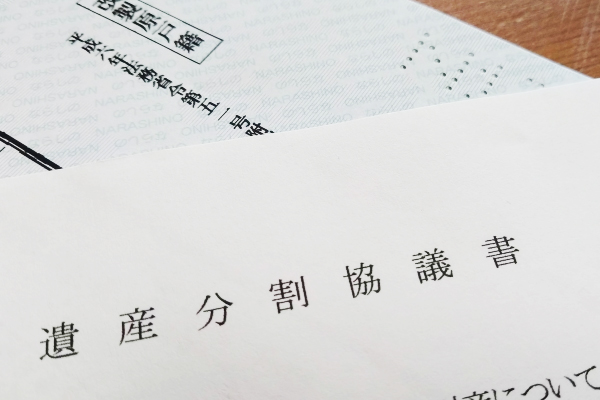 改製原戸籍
平成六年法務省令第五一号附
NARASHINO
ならしの
遺産分割協議書
財産について